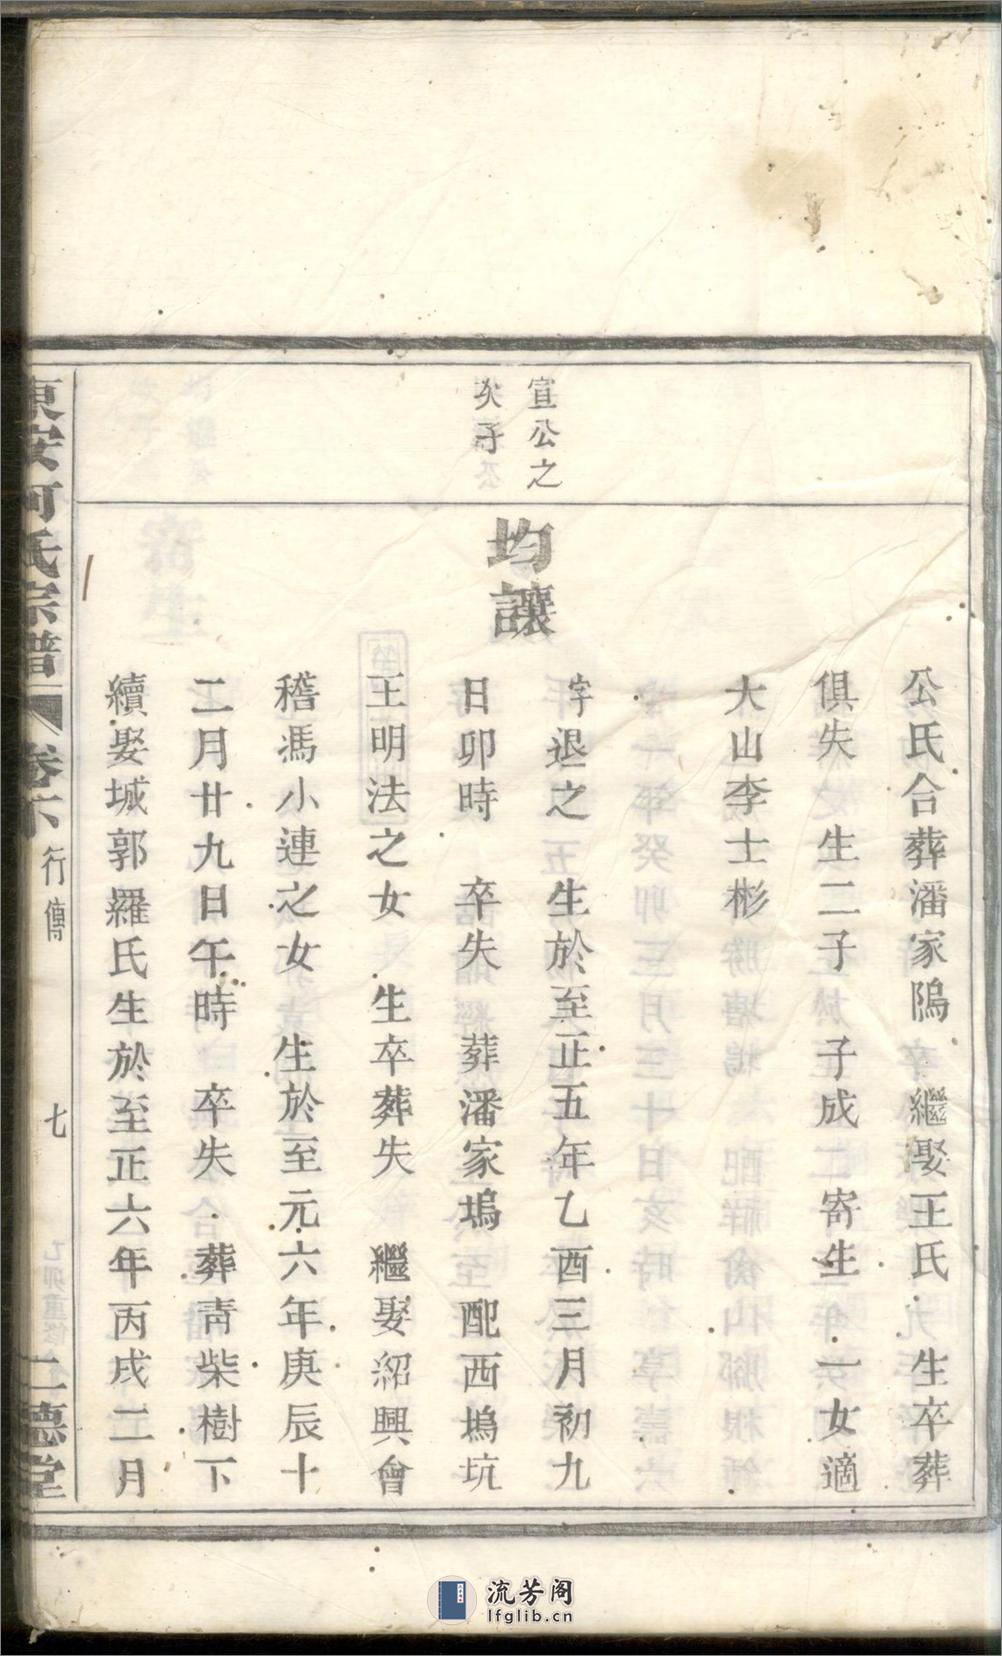 公氏合葬潘家隖 繼娶王氏 生卒葬
俱失 生二子 子成 寄生 一女適
大山李士彬
宣公之
次子
均讓
字退之 生於至正五年乙酉三月初九
日卯時 卒失 葬潘家塢 配西塢坑
王明法之女 生卒葬失 繼娶紹興會
稽馮小連之女 生於至元六年庚辰十
二月廿九日午時 卒失 葬青柴樹下
續娶城郭羅氏生於至正六年丙戌二月
東安何氏宗譜 卷六 行傳 七 一德堂
流芳阁
lfglib.cn